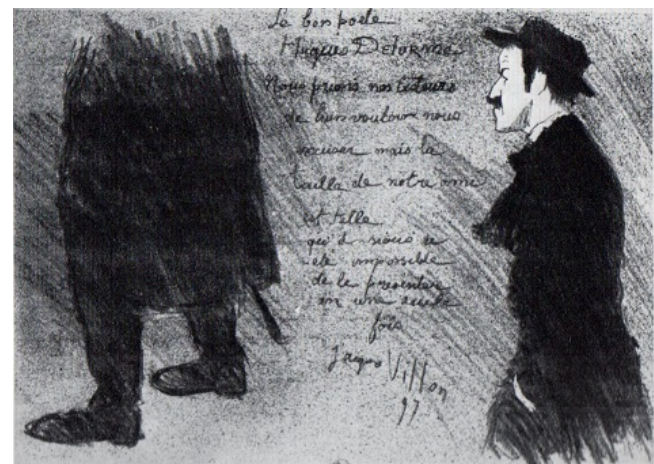 Le bon poete
Hugues Delorme
Nous prions nos lecteurs
de bien vouloir nous
excuser mais la
taille de notre ami
est telle
qu'il nous a
été impossible
de le présenter
en une seule
fois
Jacques Villon
97